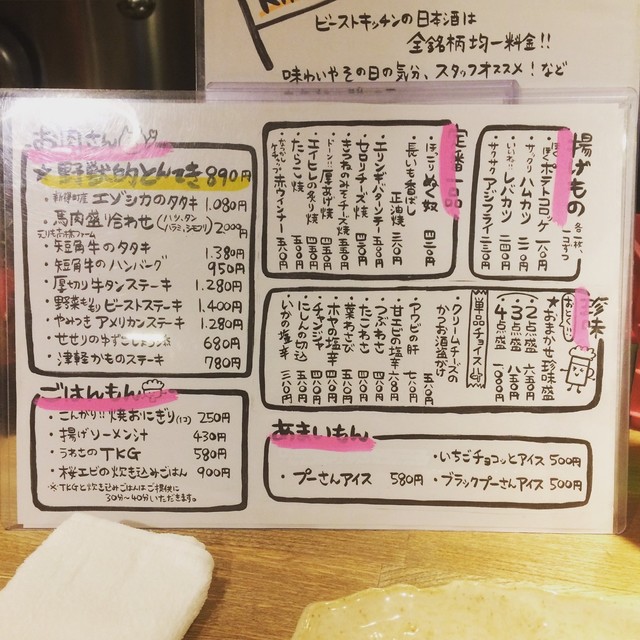 ビーストキッチンの日本酒は
全銘柄均一料金!!
味わいやその日の気分、スタッフオススメ!など
お肉さん
野獣的とんてき 890円
・新得町産 エゾシカのタタキ 1.080円
・馬肉盛り合わせ (ハツ、タン ハラミ、シモフリ) 2000円
・短角牛のタタキ 1.380円
・短角牛のハンバーグ 950円
・厚切り牛タンステーキ 1.280円
・野菜もりもりビーストステーキ 1.400円
・やみつきアメリカンステーキ 1.280円
・せせりのゆずこしょう焼 680円
・津軽かものステーキ 780円
ごはんもん
・こんがり!! 焼おにぎり(1コ) 250円
・揚げソーメン汁 430円
・うわさのTKG 580円
・桜エビの炊き込みごはん 900円
※TKGと炊き込みごはんはご提供に
30分〜40分いただきます。
定番一品
・ほっこり ぬく奴 四三〇円
・長いも香ばし正油焼
・エリンギバターソテー
・セロリチーズ焼
・きつねのみそチーズ焼
・ドーン!!厚あげ焼
・エイヒレの炙り焼
・たらこ焼
・なつかしケチャップ 赤ウインナー
揚げもの
・ほくほく ポテトコロッケ 一八〇円
・サックリ ハムカツ
・いいね!! レバカツ
・サクサク アジフライ
珍味
★おまかせ珍味盛
2点盛 六五〇円
3点盛 八五〇円
4点盛 一〇〇〇円
単品チョイス
・クリームチーズのかつお酒盗がけ
・アワビの肝
・甘エビの塩辛
・つぶわさ
・たこわさ
・茎わさび
・ホヤの塩辛
・チャンジャ
・にしんの切込
・いかの塩辛
あまいもん
・いちごチョコっとアイス 500円
・プーさんアイス 580円
・ブラックプーさんアイス 500円